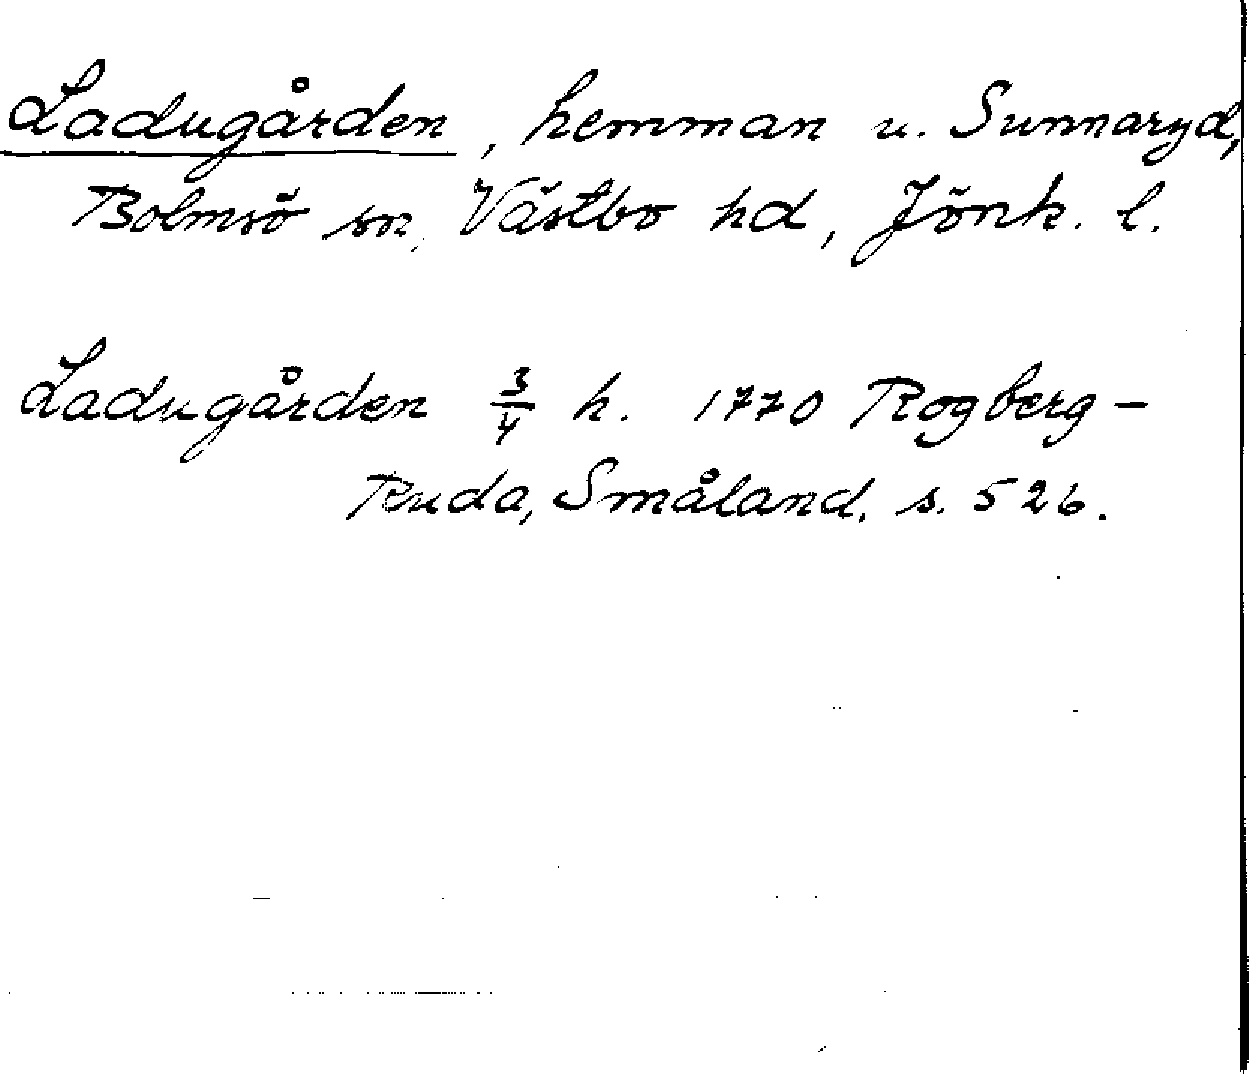 Ladugården, hemman u. Sunnaryd,
Bolmsö sn, Västbo hd, Jönk. l.
Ladugården 3/4 h. 1770 Rogberg-
Ruda, Småland, s. 526.